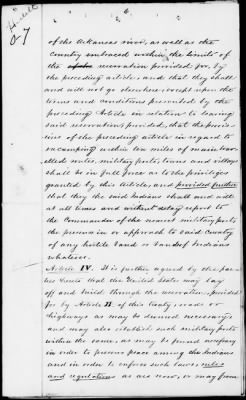 6.
07
of the Arkansas river, as well as the
country embraced within the limits of
the reservation provided for, by
the preceding article, and that they shall
and will not go elsewhere, except upon the
terms and conditions prescribed by the
preceding Article in relation to leaving
said reservations provided, that the provis-
ions of the preceding article in regard to
encamping within ten miles of main trav-
elled routes, military posts, towns and villages
shall be in full force as to the privileges
granted by this Article, and provided further
that they the said Indians shall and will
at all times and without delay report to
the Commander of the nearest military post,
the presence in or approach to said Country
of any hostile band or bands of Indians
whatsoever.
Article IV. It is further agreed by the par-
ties hereto that the United States may lay
off and build through the reservation, provided
for by Article II of this treaty, roads or
highways as may be deemed necessary;
and may also establish such military posts
within the same, as may be found necessary
in order to preserve peace among the Indians
and in order to enforce such laws, rules
and regulations as are now, or may from